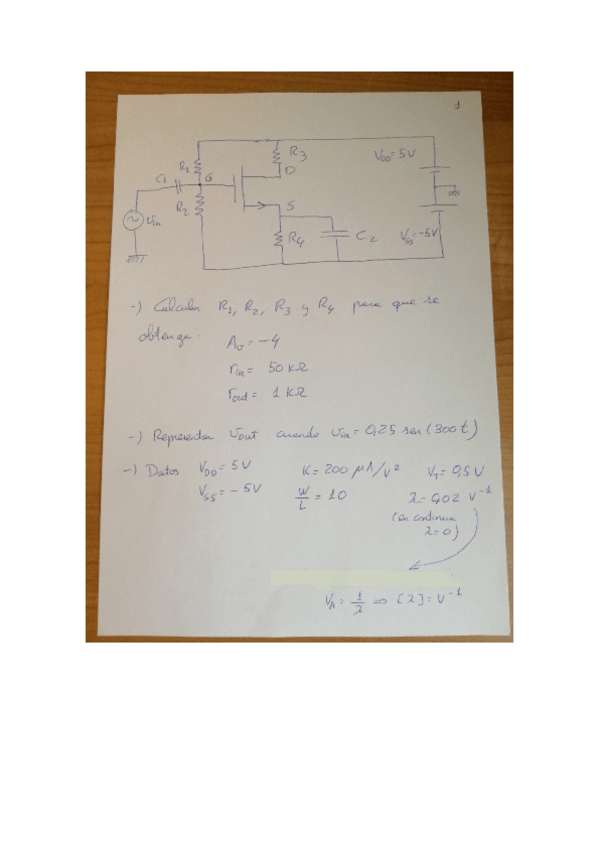 1
R3
VDD = 5V
D
R1
G
C1
R2
S
Vin
R4
C2
VSS = -5V
-) Calcular R1, R2, R3 y R4 para que se
obtenga:
Av = -4
rin = 50 KΩ
rout = 1 KΩ
-) Representar Vout cuando Vin = 0,25 sen(300t)
-) Datos VDD = 5V K = 200 μA/V² VT = 0,5 V
VSS = -5V W/L = 10 λ = 0,02 V⁻¹
(en continua
λ=0)
VA = 1/λ ⇒ [λ] = V⁻¹